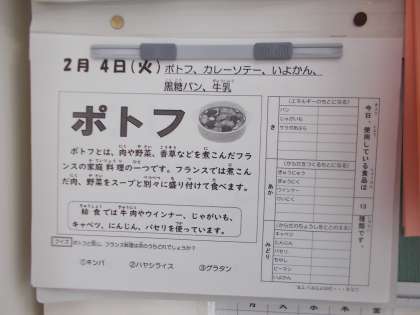 2月 4日(火) ポトフ、カレーソテー、いよかん、
黒糖パン、牛乳
ポトフ
ポトフとは、肉や野菜、香草などを煮こんだフラ
ンスの家庭料理の一つです。フランスでは煮こん
だ肉、野菜をスープと別々に盛り付けて食べます。
給食では牛肉やウインナー、じゃがいも、
キャベツ、にんじん、パセリを使っています。
クイズ ポトフと同じ、フランス料理は次のうちどれでしょうか?
①キンパ ②ハヤシライス ③グラタン
今日、使用している食品は 13 種類です。
き
(エネルギーのもとになる)
パン
じゃがいも
あか
(からだをつくるもとになる)
ぎゅうにゅう
ぎゅうにく
ウインナー
みどり
(からだのちょうしをととのえる)
キャベツ
にんじん
パセリ
もやし
ピーマン
いよかん
月 火 水 木 金